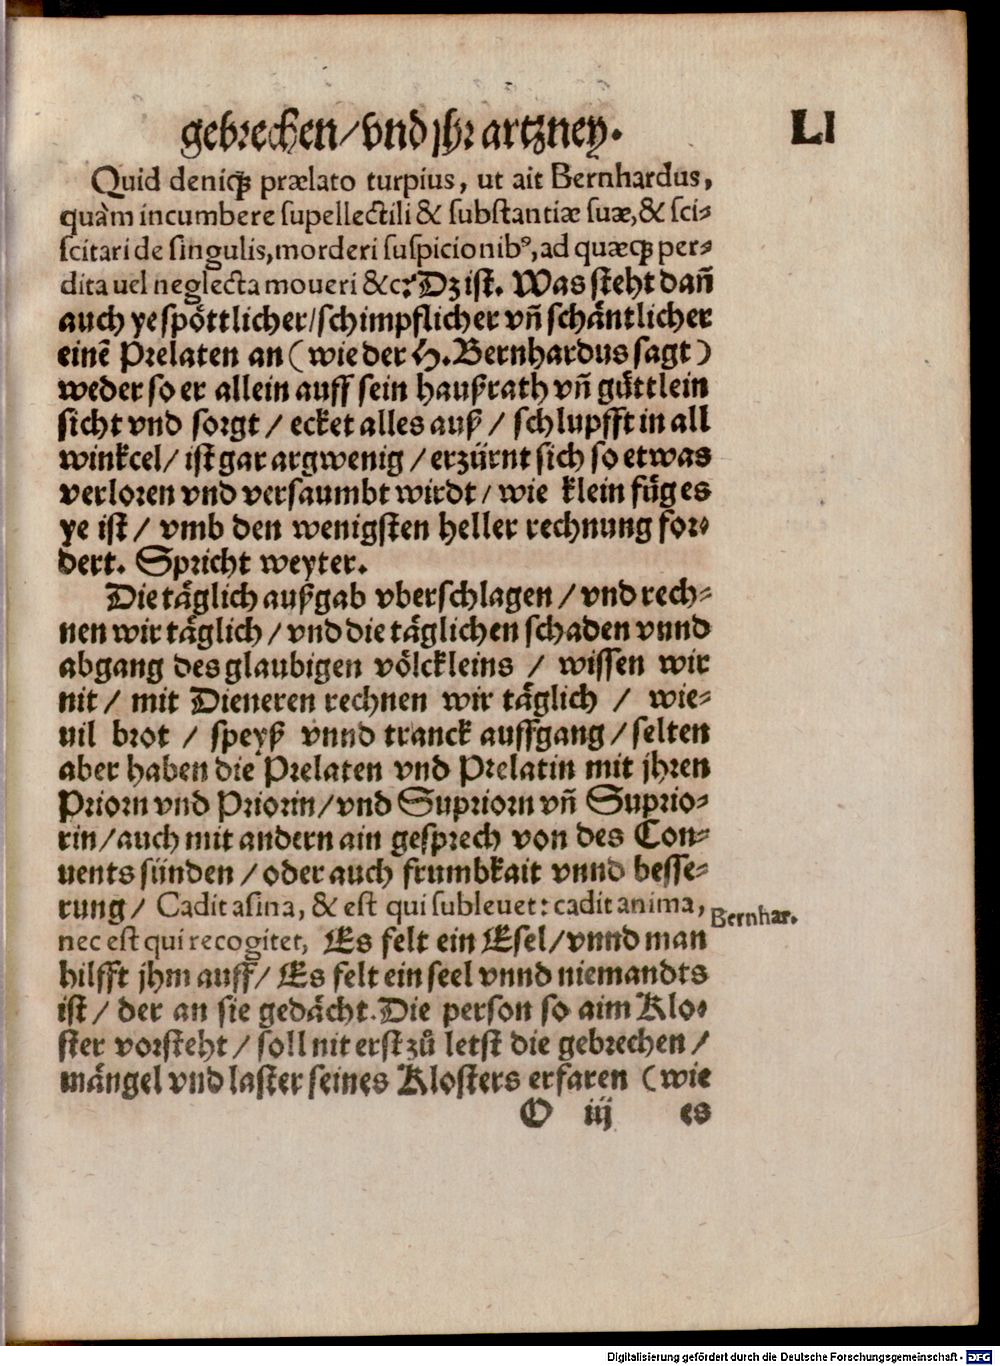 gebrechen/vnd jhr artzney.
LI
Quid deniqꝫ prælato turpius, ut ait Bernhardus,
quàm incumbere supellectili & substantiæ suæ, & sci-
scitari de singulis, morderi suspicionibꝰ, ad quæqꝫ per-
dita uel neglecta moueri &c: Dz ist. Was steht dañ
auch ye spöttlicher/schimpflicher vñ schäntlicher
einē Prelaten an (wie der H. Bernhardus sagt)
weder so er allein auff sein haußrath vñ güttlein
sicht vnd sorgt / ecket alles auß / schlupfft in all
winckel/ ist gar argwenig / erzürnt sich so etwas
verloren vnd versaumbt wirdt / wie klein füg es
ye ist / vmb den wenigsten heller rechnung for-
dert. Spricht weyter.
Die täglich außgab vberschlagen / vnd rech-
nen wir täglich / vnd die täglichen schaden vnnd
abgang des glaubigen völckleins / wissen wir
nit / mit Dieneren rechnen wir täglich / wie-
uil brot / speyß vnnd tranck auffgang / selten
aber haben die Prelaten vnd Prelatin mit jhren
Priorn vnd Priorin/vnd Supriorn vñ Suprio-
rin/auch mit andern ain gesprech von des Con-
uents sünden / oder auch frumbkait vnnd besse-
rung / Cadit asina, & est qui subleuet: cadit anima,
Bernhar.
nec est qui recogitet, Es felt ein Esel/vnnd man
hilfft jhm auff/ Es felt ein seel vnnd niemandts
ist / der an sie gedächt. Die person so aim Klo-
ster vorsteht / soll nit erst zů letst die gebrechen /
mängel vnd laster seines Klosters erfaren (wie
O iij es
Digitalisierung gefördert durch die Deutsche Forschungsgemeinschaft - DFG